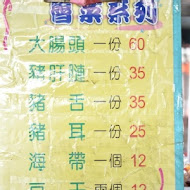 魯菜系列
大腸頭一份60
豬肝腱一份35
豬舌一份35
豬耳一份25
海帶一個12
豆干兩個12